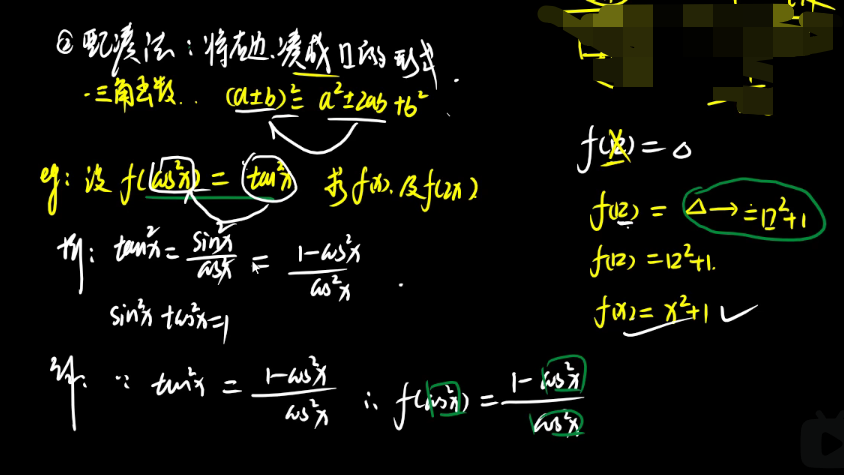 ② 配凑法：将右边凑成口的形式.
·三角函数.. (a±b)² = a²±2ab+b²
eg: 设 f(cos²x) = tan²x 求f(x).及f(2x)
析: tan²x = sin²x/cos²x = 1-cos²x/cos²x .
sin²x+cos²x=1
解: ∵ tan²x = 1-cos²x/cos²x ∴ f(cos²x) = 1-cos²x/cos²x
f(x) = △
f(口) = △→=口²+1
f(口) = 口²+1.
f(x) = x²+1 ✓